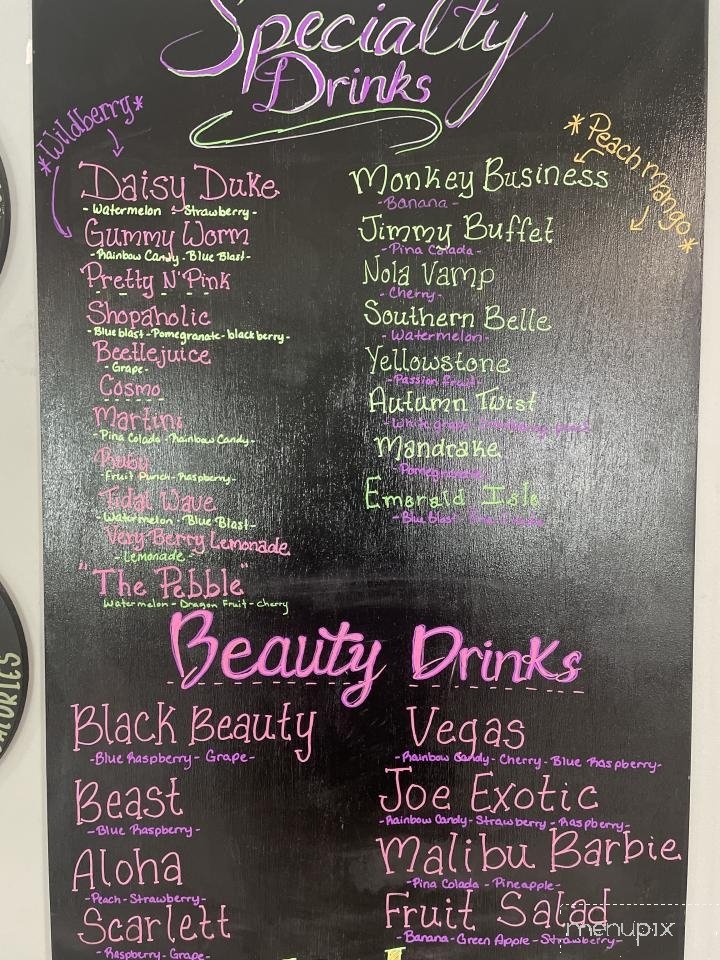 Specialty
Drinks
*Wildberry*
Daisy Duke
- Watermelon - Strawberry -
Gummy Worm
- Rainbow Candy - Blue Blast -
Pretty N' Pink
Shopaholic
- Blue blast - Pomegranate - blackberry -
Beetlejuice
- Grape -
Cosmo
Martini
- Pina Colada - Rainbow Candy -
Ruby
- Fruit Punch - Raspberry -
Tidal Wave
- Watermelon - Blue Blast -
Very Berry Lemonade
- Lemonade -
"The Pebble"
Watermelon - Dragon Fruit - Cherry
*Peach mango*
Monkey Business
- Banana -
Jimmy Buffet
- Pina Colada -
Nola Vamp
- Cherry -
Southern Belle
- Watermelon -
Yellowstone
- Passion Fruit -
Autumn Twist
- White grape -
Mandrake
- Pomegranate
Emerald Isle
- Blue Blast - Pina Colada
Beauty Drinks
Black Beauty
- Blue Raspberry - Grape -
Beast
- Blue Raspberry -
Aloha
- Peach - Strawberry -
Scarlett
- Raspberry - Grape -
Vegas
- Rainbow Candy - Cherry - Blue Raspberry -
Joe Exotic
- Rainbow Candy - Strawberry - Raspberry -
Malibu Barbie
- Pina Colada - Pineapple -
Fruit Salad
- Banana - Green Apple - Strawberry -
menupix